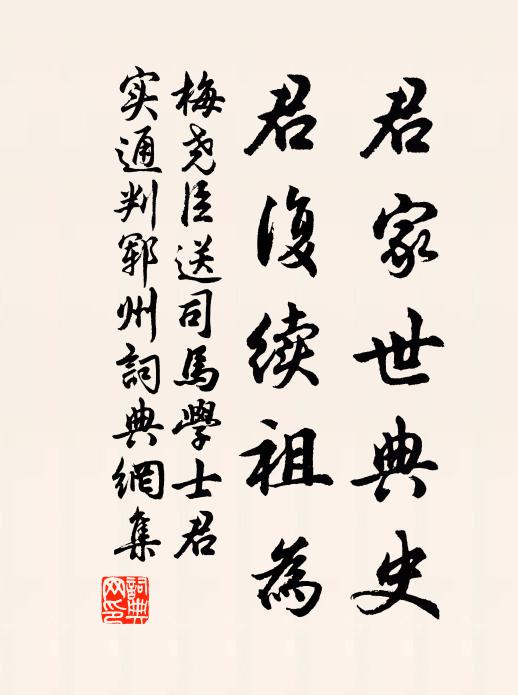 君家世典史
君復續祖為
梅尧臣送司馬學士君
实通判鄆州詞典網集
詞典
网印